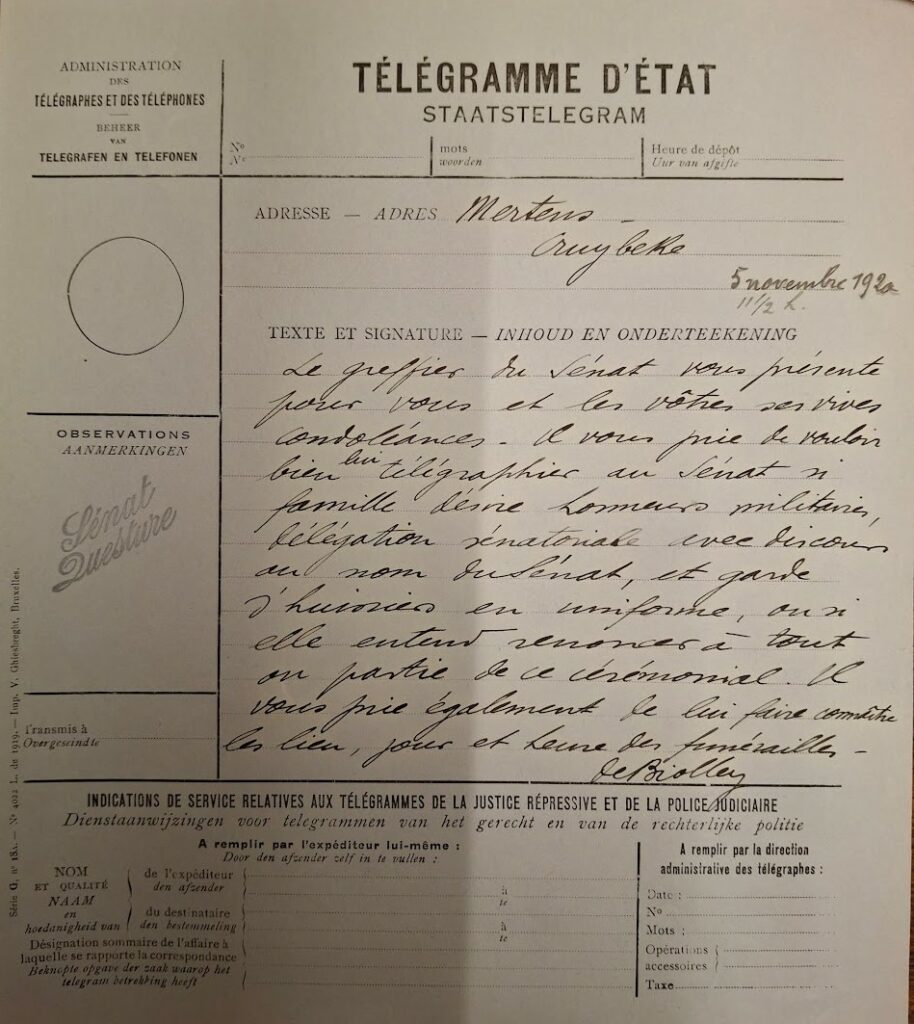 ADMINISTRATION
DES
TÉLÉGRAPHES ET DES TÉLÉPHONES
BEHEER
VAN
TELEGRAFEN EN TELEFONEN
TÉLÉGRAMME D'ÉTAT
STAATSTELEGRAM
No
Nr
mots
woorden
Heure de dépôt
Uur van afgifte
ADRESSE — ADRES Mertens
Cruybeke
5 novembre 1920
11 1/2 h.
TEXTE ET SIGNATURE — INHOUD EN ONDERTEEKENING
Le greffier du Sénat vous présente
pour vous et les vôtres ses vives
condoléances - Il vous prie de vouloir
bien lui télégraphier au Sénat si
famille désire honneurs militaires,
délégation sénatoriale avec discours
au nom du Sénat, et garde
d'huissiers en uniforme, ou si
elle entend renoncer à tout
ou partie de ce cérémonial. Il
vous prie également de lui faire connaître
les lieu, jour et heure des funérailles -
de Biolley
OBSERVATIONS
AANMERKINGEN
Sénat
Questure
Transmis à
Overgeseindte
Série G, no 18A. — No 4022 L. de 1919. — Imp. V. Ghiesbreght, Bruxelles.
INDICATIONS DE SERVICE RELATIVES AUX TÉLÉGRAMMES DE LA JUSTICE RÉPRESSIVE ET DE LA POLICE JUDICIAIRE
Dienstaanwijzingen voor telegrammen van het gerecht en van de rechterlijke politie
A remplir par l'expéditeur lui-même :
Door den afzender zelf in te vullen :
NOM
ET QUALITÉ
NAAM
en
hoedanigheid van
de l'expéditeur
den afzender
à
te
du destinataire
den bestemmeling
à
te
Désignation sommaire de l'affaire à
laquelle se rapporte la correspondance
Beknopte opgave der zaak waarop het
telegram betrekking heeft
A remplir par la direction
administrative des télégraphes :
Date :
No
Mots :
Opérations
accessoires
Taxe